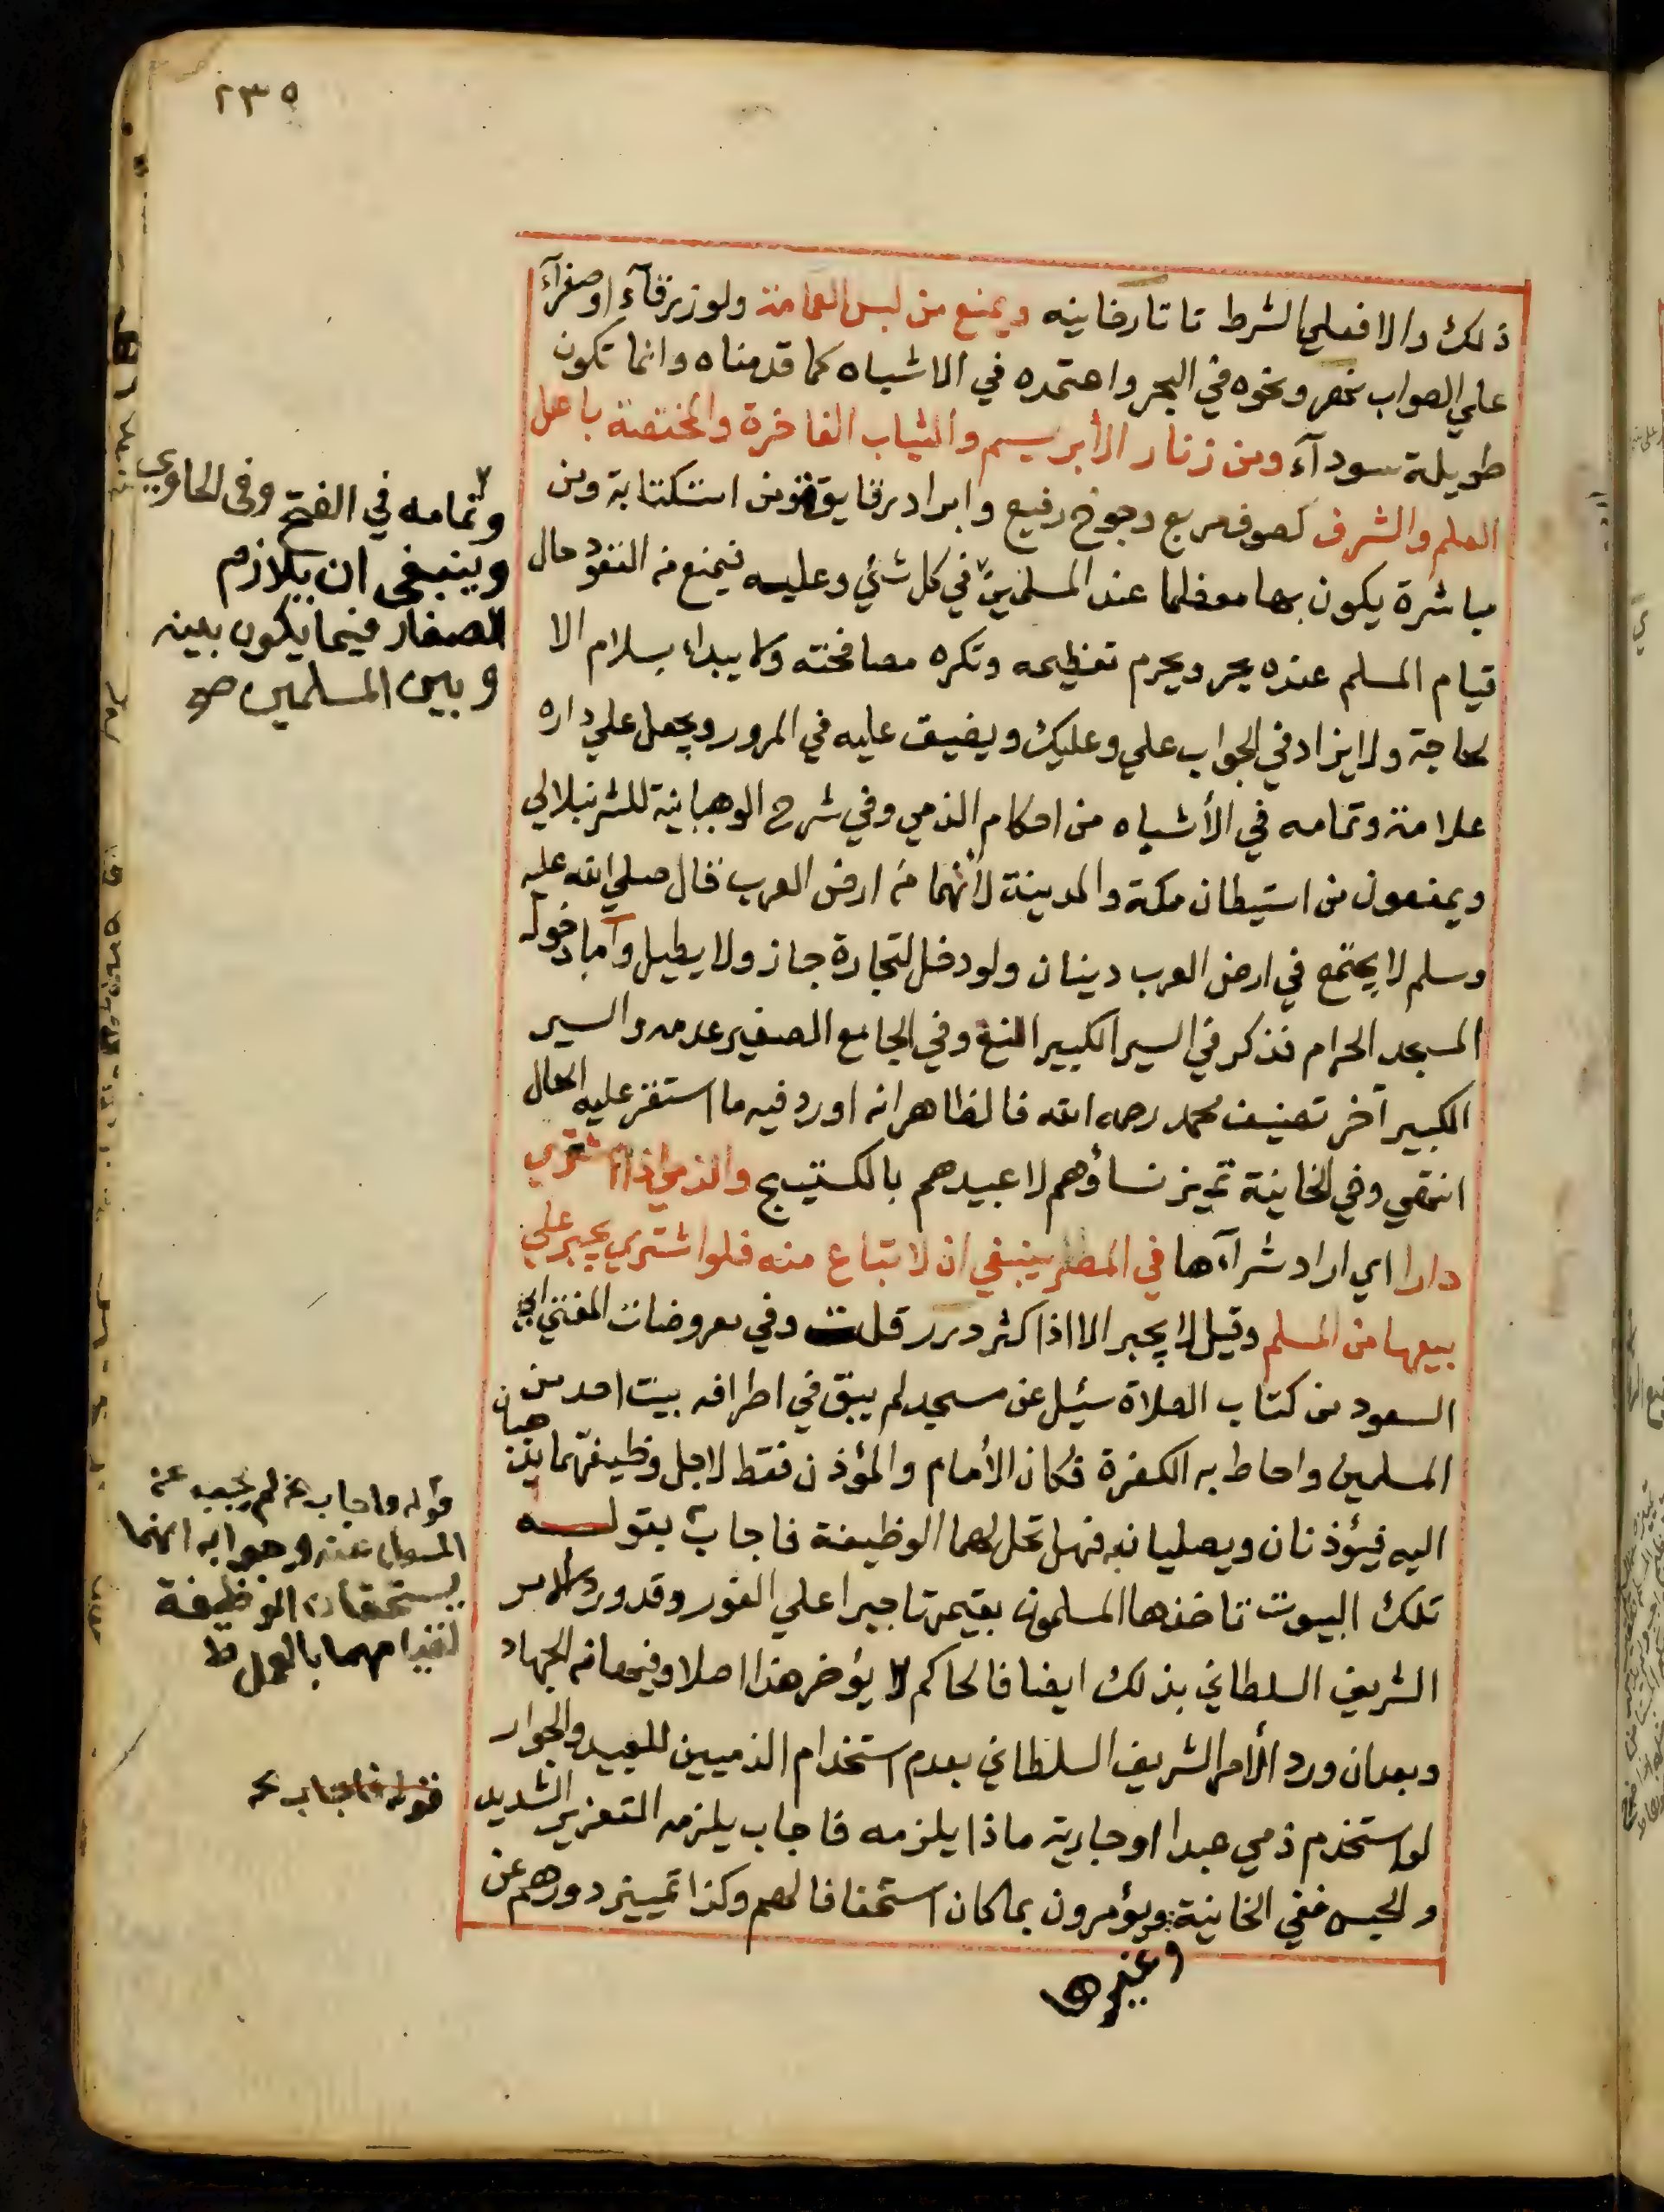 ٢٣٥
ذلك والا فعلي الشرط تاتارخانيه ويمنع من لبس العمامة ولو زرقاء او صفرآء
علي الصواب نهر ونحوه في البحر واعتمده في الاشباه كما قدمناه وانما تكون
طويلة سودآء ومن زنار الأبريسم والثياب الفاخرة والمختصة باهل
العلم والشرف كصوف مربع وجوخ رفيع وابراد رقايق ومن استكتابة ومن
مباشرة يكون بها معظما عند المسلمين في كل شئ وعليه فيمنع من القعود حال
قيام المسلم عنده بحر ويحرم تعظيمه وتكره مصافحته ولا يبداء بسلام الا
لحاجة ولا يزاد في الجواب علي وعليك ويضيق عليه في المرور ويجعل علي داره
علامة وتمامه في الأشباه من احكام الذمي وفي شرح الوهبانية للشرنبلالي
ويمنعون من استيطان مكة والمدينة لأنهما من ارض العرب قال صلي الله عليه
وسلم لا يجتمع في ارض العرب دينان ولو دخل لتجارة جاز ولا يطيل وآما دخوله
المسجد الحرام فذكر في السير الكبير المنع وفي الجامع الصغير عدمه والسير
الكبير آخر تصنيف محمد رحمه الله فالظاهر انه اورد فيه ما استقر عليه الحال
انتهي وفي الخانية تميز نساؤهم لا عبيدهم بالكستيج والذمي اذا اشتري
دارا اي اراد شرآءها في المصر ينبغي ان لا تباع منه فلو اشتري يجبر علي
بيعها من المسلم وقيل لا يجبر الا اذا كثر درر قلت وفي معروضات المفتي ابي
السعود من كتاب الصلاة سئيل عن مسجد لم يبق في اطرافه بيت احد من
المسلمين واحاط به الكفرة فكان الأمام والمؤذن فقط لاجل وظيفتهما يذهبان
اليه فيؤذنان ويصليان به فهل تحل لهما الوظيفة فاجاب بقوله
تلك البيوت تاخذها المسلمون بقيمتها جبرا علي الفور وقد ورد الامر
الشريف السلطاني بذلك ايضا فالحاكم لا يؤخر هذا اصلا وفيها من الجهاد
وبعد ان ورد الأمر الشريف السلطاني بعدم استخدام الذميين للعبيد والجوار
لو استخدم ذمي عبدا او جارية ماذا يلزمه فاجاب يلزمه التعزير الشديد
والحبس ففي الخانية ويؤمرون بما كان استخفافا لهم وكذا تمييز دورهم عن
وغيرها
وتمامه في الفتح وفى الحاوي
وينبغى ان يلازم
الصغار فيما يكون بينه
وبين المسلمين صح
قوله واجاب الخ لم يجب عن
المسؤل عنه وجوابه انهما
يستحقان الوظيفة
لقيامهما بالعمل ط
قوله فاجاب